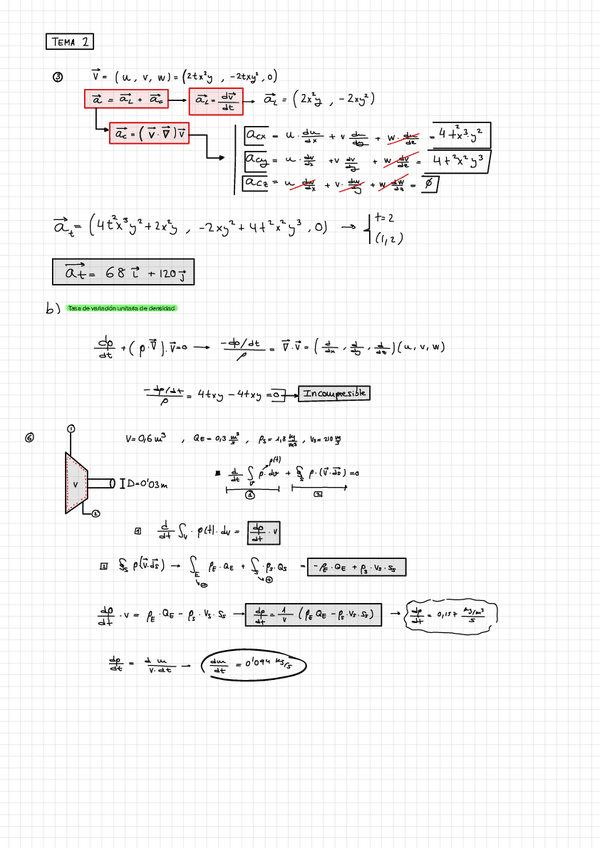 TEMA 2
③ V⃗ = (u, v, w) = (2tx²y , -2txy², 0)
a⃗ = a⃗L + a⃗c → a⃗L = dv⃗/dt → a⃗L = (2x²y , -2xy²)
a⃗c = (V⃗ · ∇⃗) v⃗
acx = u · du/dx + v du/dy + w · du/dz = 4t²x³y²
acy = u · dv/dx + v dv/dy + w dv/dz = 4t²x²y³
acz = u dw/dx + v · dw/dy + w dw/dz = ∅
a⃗t = (4t²x³y² + 2x²y , -2xy² + 4t²x²y³ , 0) → { t=2
(1,2)
a⃗t = 68 i⃗ + 120 j⃗
b) Tasa de variación unitaria de densidad
dρ/dt + (ρ · ∇⃗) · V⃗ = 0 → -dρ/dt / ρ = ∇⃗ · V⃗ = (d/dx , d/dy , d/dz)(u, v, w)
-dρ/dt / ρ = 4txy - 4txy = 0 → Incompresible
⑥ ① V = 0,6 m³ , QE = 0,3 m³/s , ρs = 1,8 kg/m³ , Vs = 210
V D = 0'03 m ②
d/dt ∫v ρ · dv + ∮s ρ · (v⃗ · ds⃗) = 0
ρ(t)
① ②
1 d/dt ∫v · ρ(t) · dv = dρ/dt · V
2 ∮s ρ(v⃗ · ds⃗) → ∫E ρE · QE + ∫s · ρs Qs = -ρE · QE + ρs · Vs · Ss
dρ/dt · V = ρE · QE - ρs · Vs · Ss → dρ/dt = 1/V (ρE QE - ρs · Vs · Ss) → dρ/dt = 0,157 kg/m³/s
dρ/dt = d m / V · dt → dm/dt = 0'094 kg/s